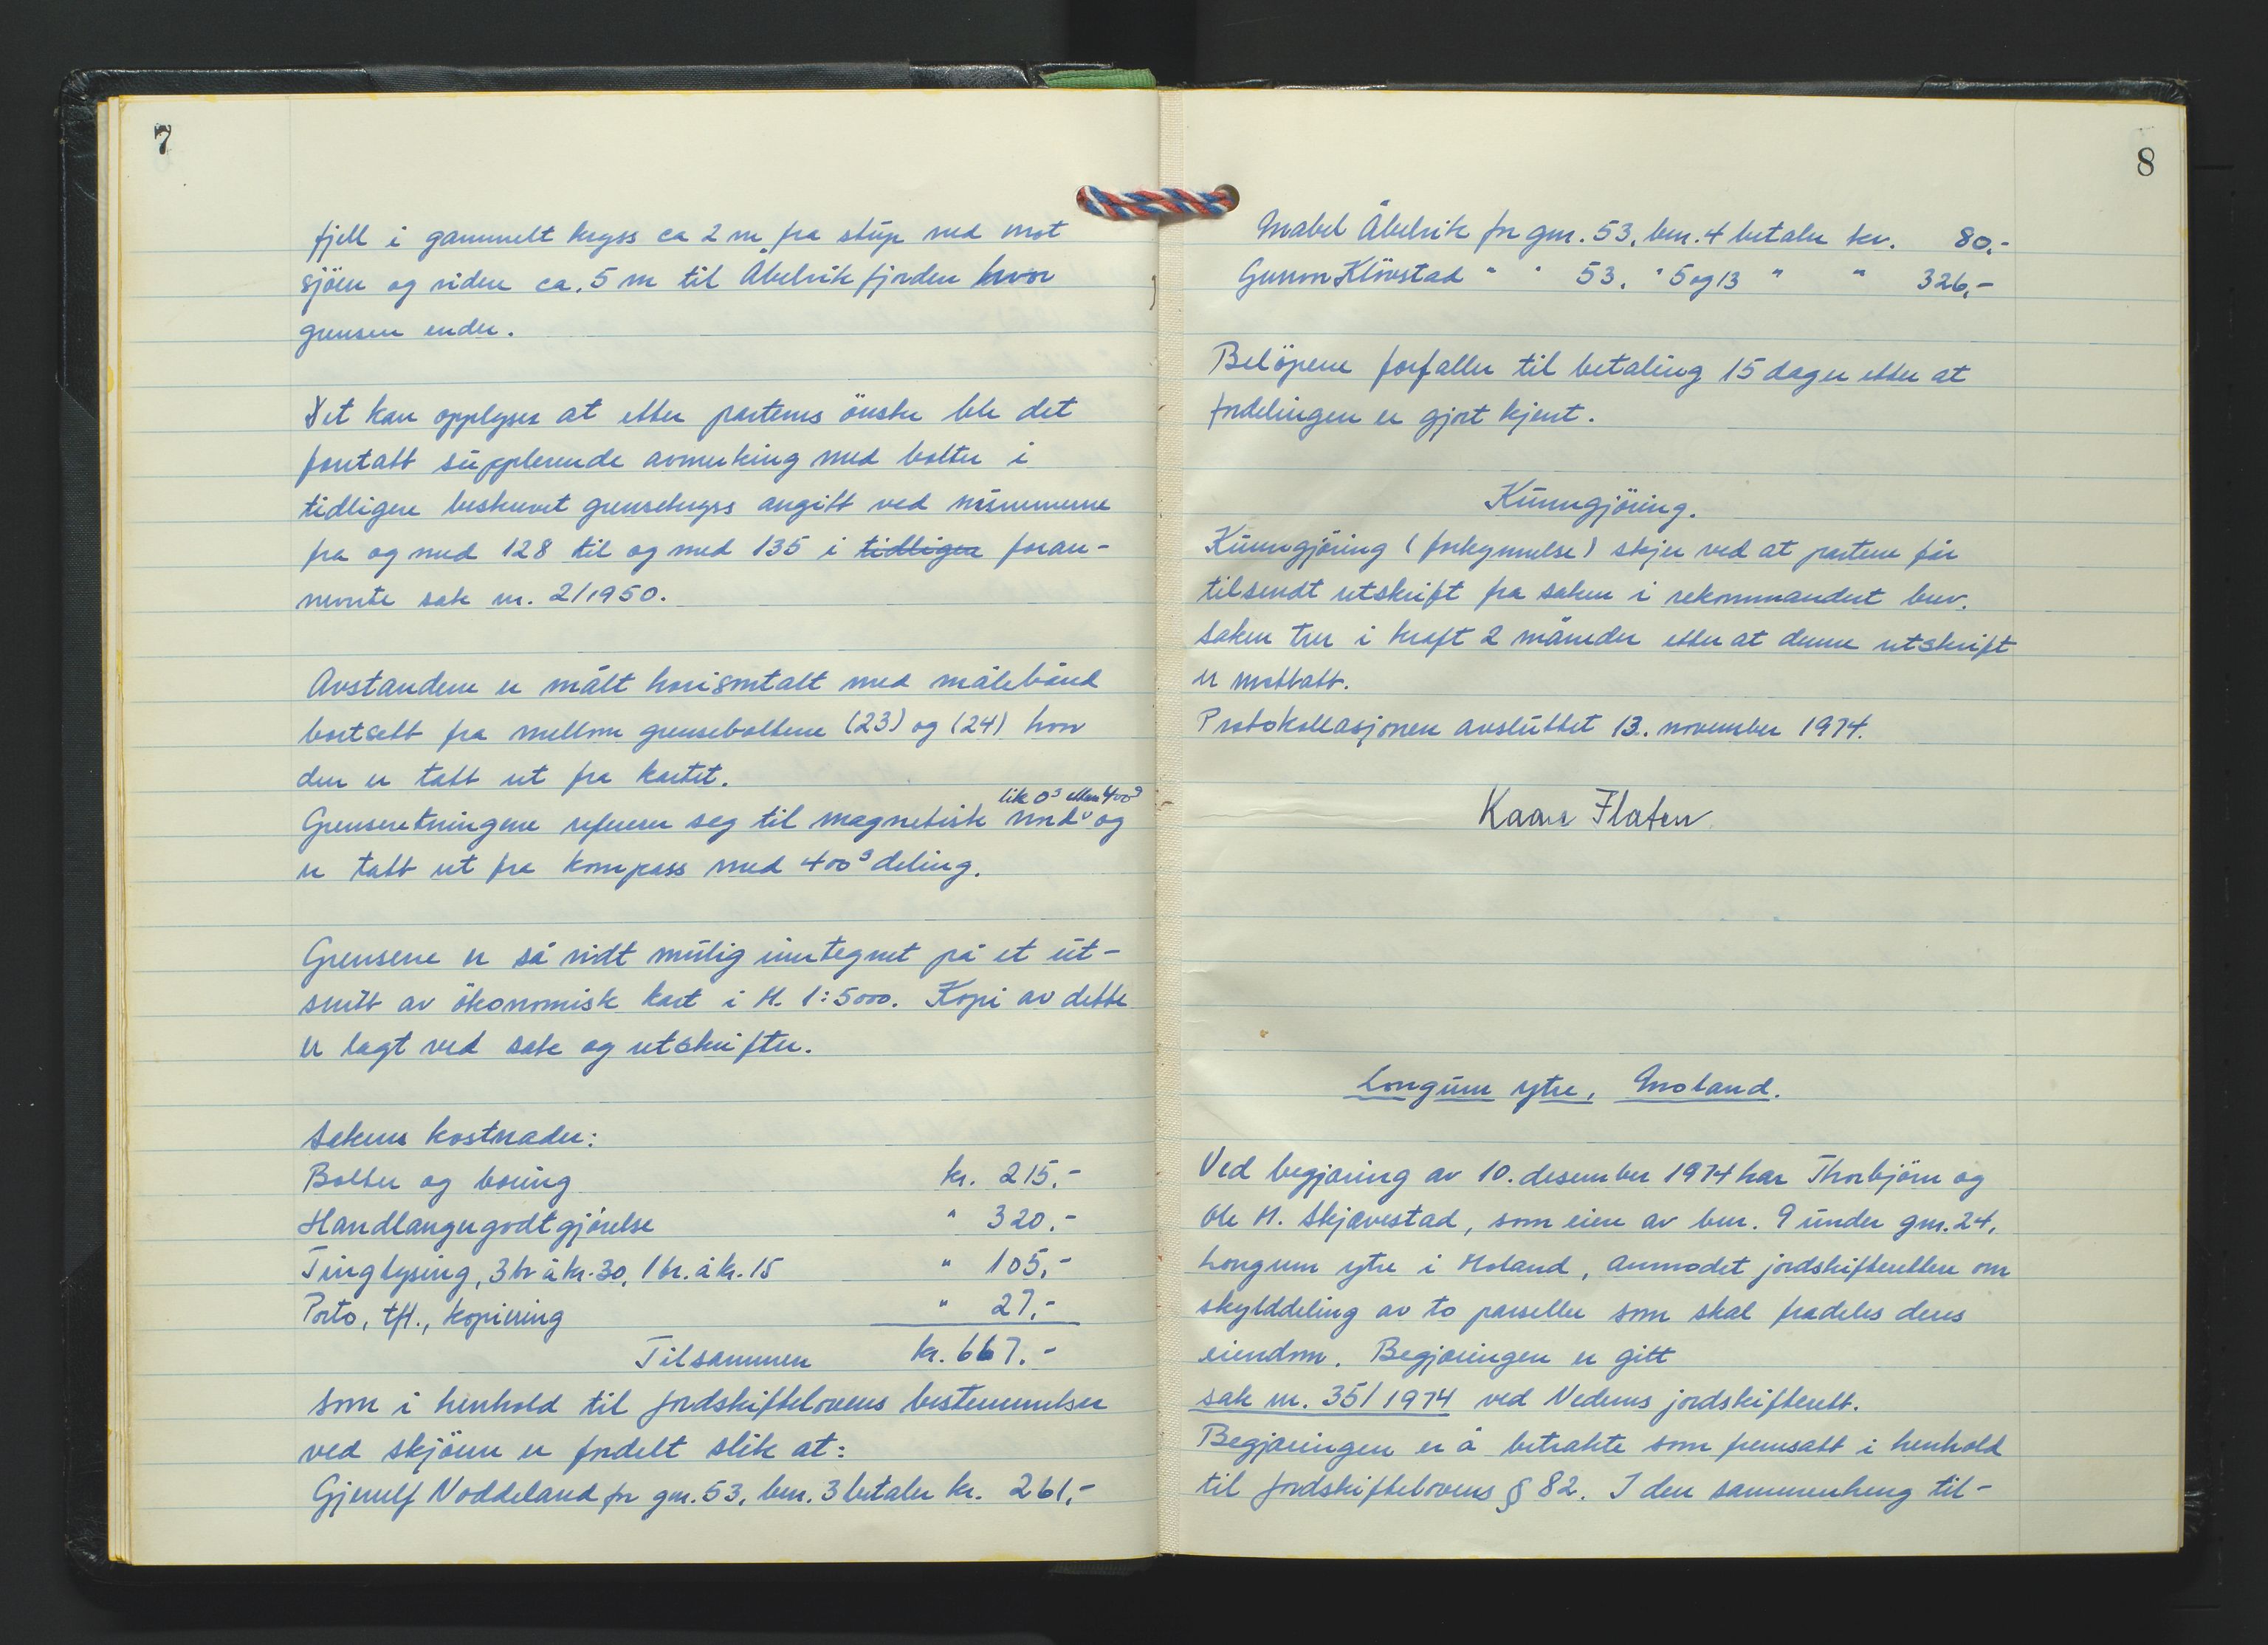 7
fjell i gammelt kryss ca 2 m fra stup ned mot
sjöen og videre ca. 5 m til Åbelvikfjorden hvor
grensen ender.
Det kan opplyses at etter partenes önske ble det
foretatt supplerende avmerking med bolter i
tidligere beskrevet grensekryss angitt ved nummerne
fra og med 128 til og med 135 i tidligere foran-
nevnte sak nr. 2/1950.
Avstandene er målt horisontalt med målebånd
bortsett fra mellom grenseboltene (23) og (24) hvor
den er tatt ut fra kartet.
lik 0g eller 400g
Grenseretningene referer seg til magnetisk nord og
er tatt ut fra kompass med 400g deling.
Grensene er så vidt mulig inntegnet på et ut-
snitt av ökonomisk kart i M. 1:5000. Kopi av dette
er lagt ved sak og utskrifter.
Sakens kostnader:
Bolter og boring kr. 215,-
Handlangergodtgjörelse " 320,-
Tinglysing, 3 br à kr. 30, 1 br. à kr. 15 " 105,-
Porto, tlf., kopiering " 27,-
Tilsammen kr. 667,-
som i henhold til jordskiftelovens bestemmelser
ved skjönn er fordelt slik at:
Gjerulf Noddeland for gnr. 53, bnr. 3 betaler kr. 261,-
8
Mabel Åbelvik for gnr. 53, bnr. 4 betaler kr. 80,-
Gunvor Klövstad " " 53, " 5 og 13 " " 326,-
Belöpene forfaller til betaling 15 dager etter at
fordelingen er gjort kjent.
Kunngjöring.
Kunngjöring (forkynnelse) skjer ved at partene får
tilsendt utskrift fra saken i rekommandert brev.
Saken trer i kraft 2 måneder etter at denne utskrift
er mottatt.
Protokollasjonen avsluttet 13. november 1974.
Kaare Flaten
Longum ytre, Moland.
Ved begjæring av 10. desember 1974 har Thorbjörn og
Ole M. Skjævestad, som eiere av bnr. 9 under gnr. 24,
Longum ytre i Moland, anmodet jordskifteretten om
skylddeling av to parseller som skal fradeles deres
eiendom. Begjæringen er gitt
sak nr. 35/1974 ved Nedenes jordskifterett.
Begjæringen er å betrakte som fremsatt i henhold
til jordskiftelovens § 82. I den sammenheng til-